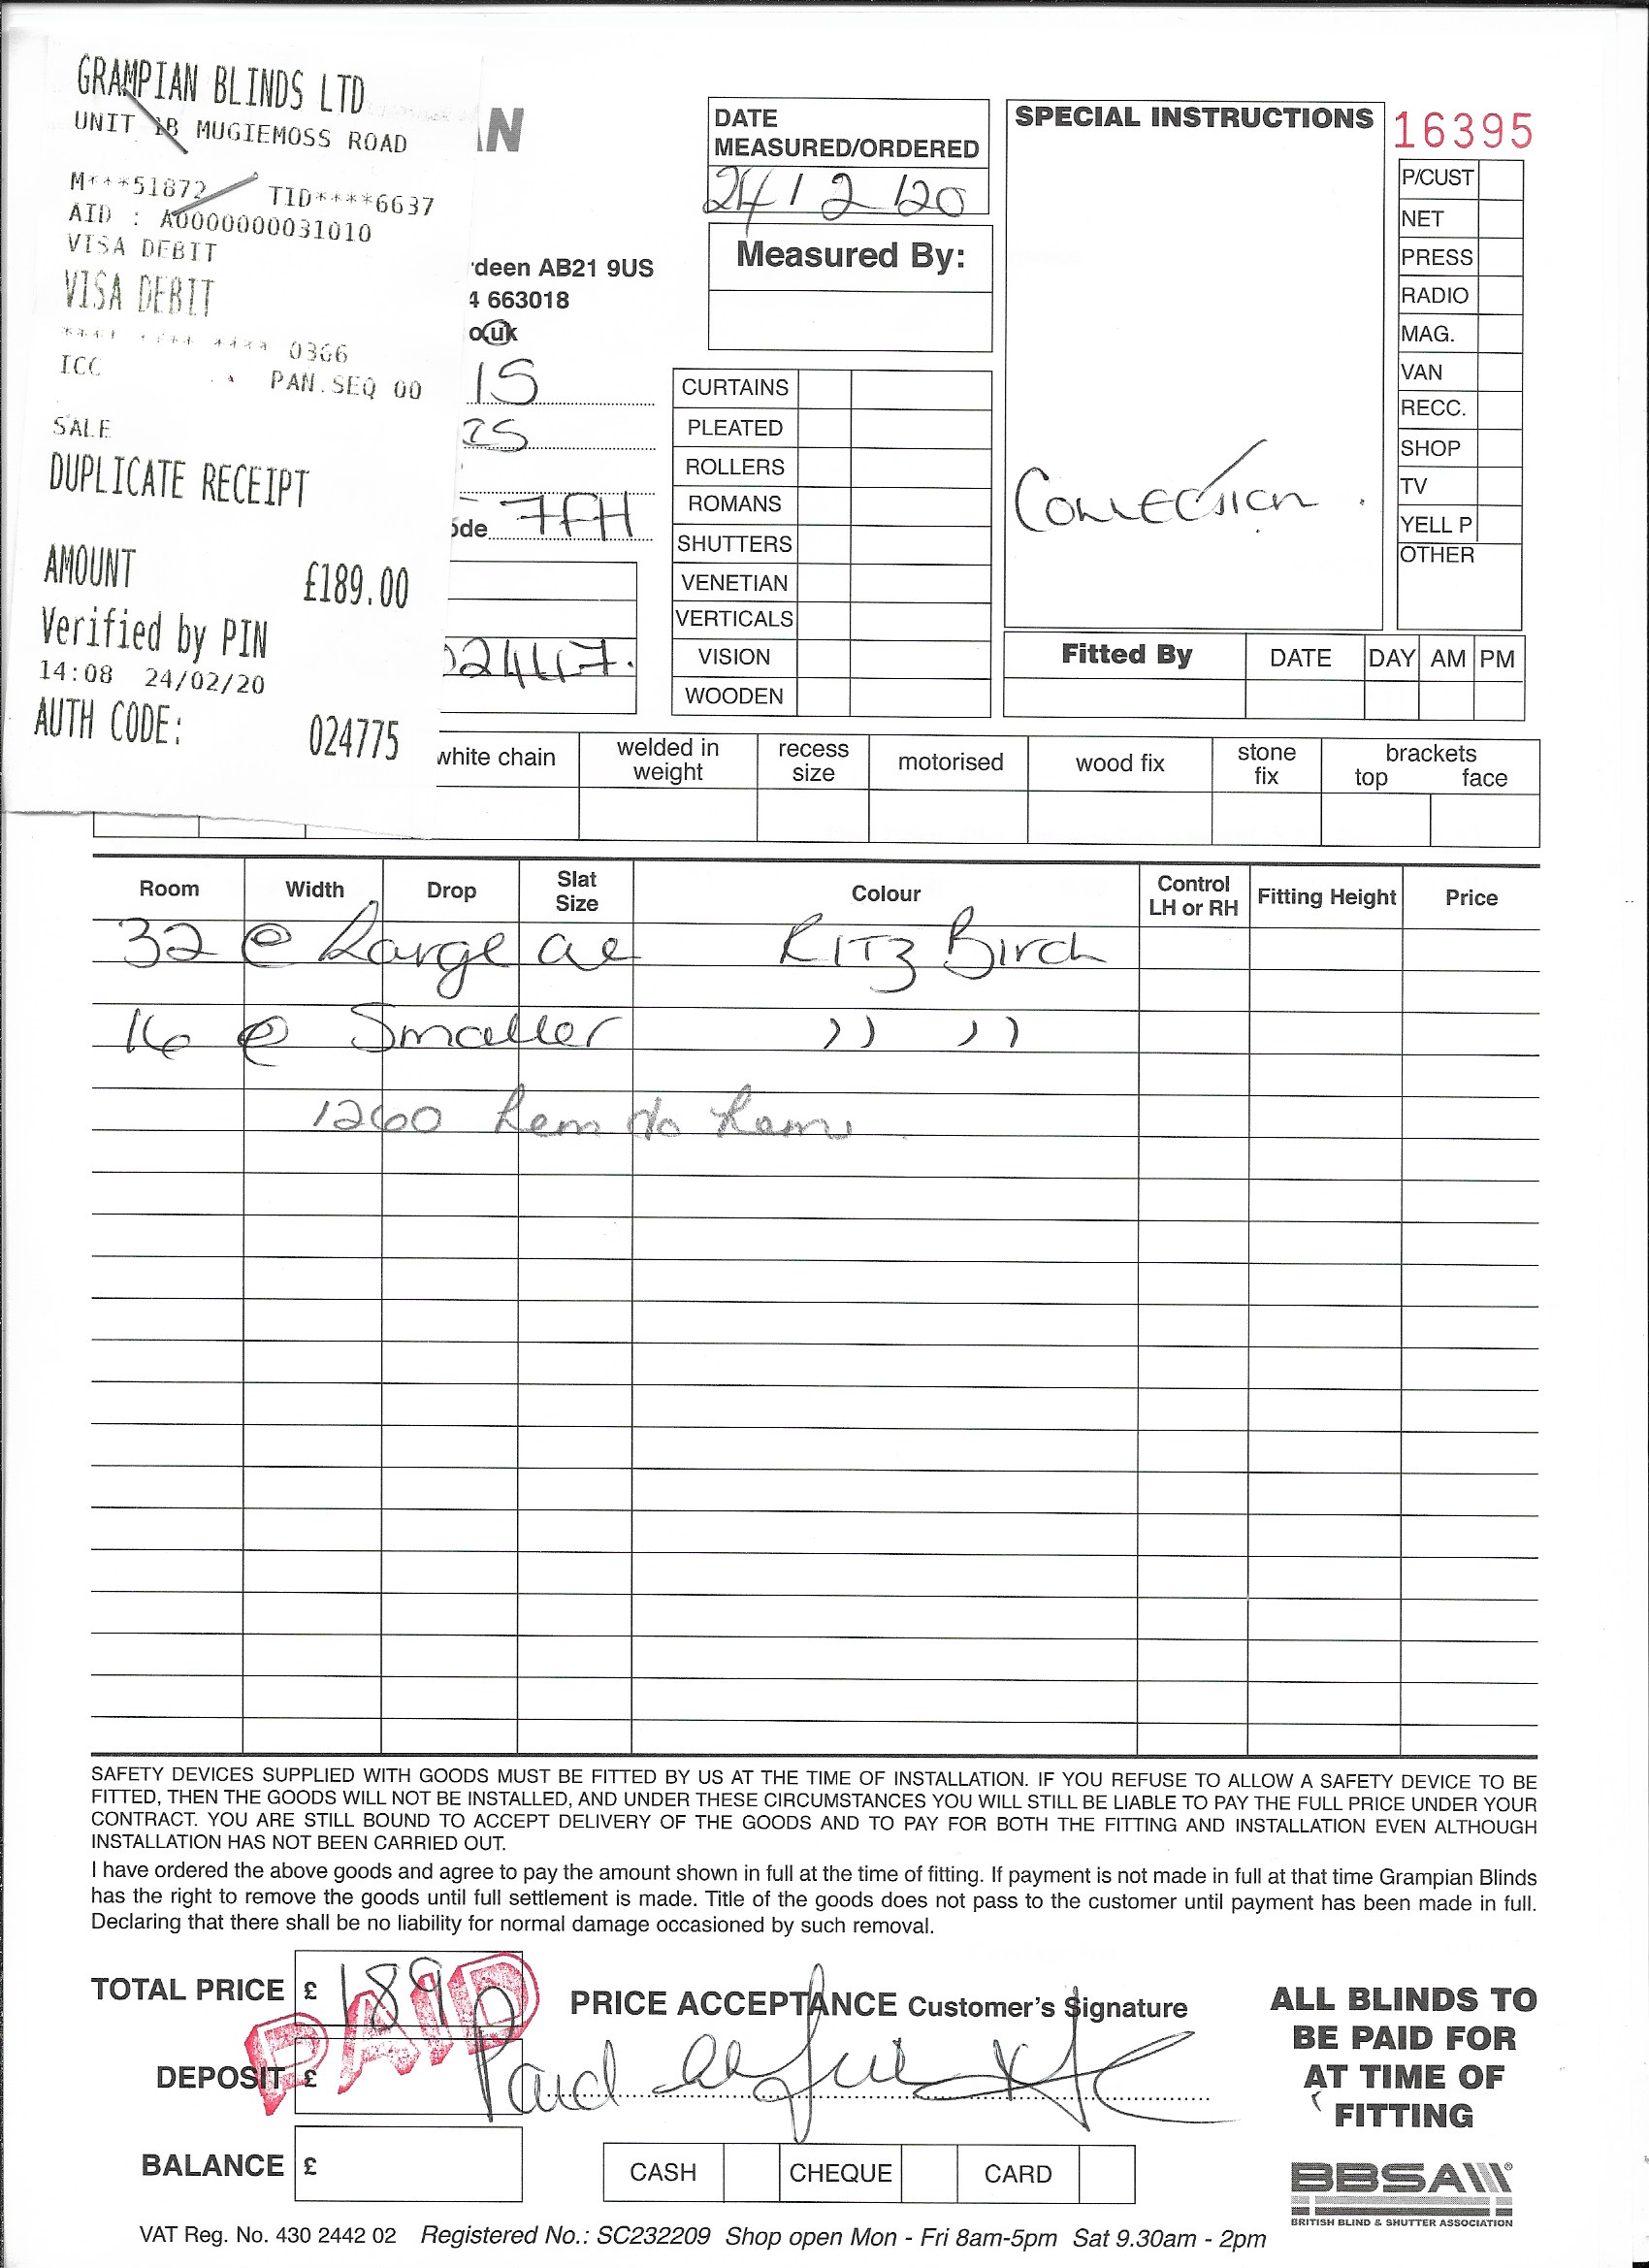 GRAMPIAN BLINDS LTD
UNIT 1B MUGIEMOSS ROAD
M***51872 TID****6637
AID : A0000000031010
VISA DEBIT
VISA DEBIT
**** **** **** 0366
ICC PAN.SEQ 00
SALE
DUPLICATE RECEIPT
AMOUNT £189.00
Verified by PIN
14:08 24/02/20
AUTH CODE: 024775
AN
rdeen AB21 9US
4 663018
o.uk
IS
ode 7FH
02447.
DATE
MEASURED/ORDERED
24/2/20
Measured By:
CURTAINS
PLEATED
ROLLERS
ROMANS
SHUTTERS
VENETIAN
VERTICALS
VISION
WOODEN
SPECIAL INSTRUCTIONS
Collection.
16395
P/CUST
NET
PRESS
RADIO
MAG.
VAN
RECC.
SHOP
TV
YELL P
OTHER
Fitted By DATE DAY AM PM
white chain welded in weight recess size motorised wood fix stone fix brackets top face
Room Width Drop Slat Size Colour Control LH or RH Fitting Height Price
32 @ Large Ritz Birch
16 @ Smaller ,, ,,
1260 hem to hem
SAFETY DEVICES SUPPLIED WITH GOODS MUST BE FITTED BY US AT THE TIME OF INSTALLATION. IF YOU REFUSE TO ALLOW A SAFETY DEVICE TO BE
FITTED, THEN THE GOODS WILL NOT BE INSTALLED, AND UNDER THESE CIRCUMSTANCES YOU WILL STILL BE LIABLE TO PAY THE FULL PRICE UNDER YOUR
CONTRACT. YOU ARE STILL BOUND TO ACCEPT DELIVERY OF THE GOODS AND TO PAY FOR BOTH THE FITTING AND INSTALLATION EVEN ALTHOUGH
INSTALLATION HAS NOT BEEN CARRIED OUT.
I have ordered the above goods and agree to pay the amount shown in full at the time of fitting. If payment is not made in full at that time Grampian Blinds
has the right to remove the goods until full settlement is made. Title of the goods does not pass to the customer until payment has been made in full.
Declaring that there shall be no liability for normal damage occasioned by such removal.
TOTAL PRICE £ 189
PAID
PRICE ACCEPTANCE Customer's Signature
DEPOSIT £
Paid
BALANCE £
CASH CHEQUE CARD
ALL BLINDS TO
BE PAID FOR
AT TIME OF
FITTING
BBSA
BRITISH BLIND & SHUTTER ASSOCIATION
VAT Reg. No. 430 2442 02 Registered No.: SC232209 Shop open Mon - Fri 8am-5pm Sat 9.30am - 2pm